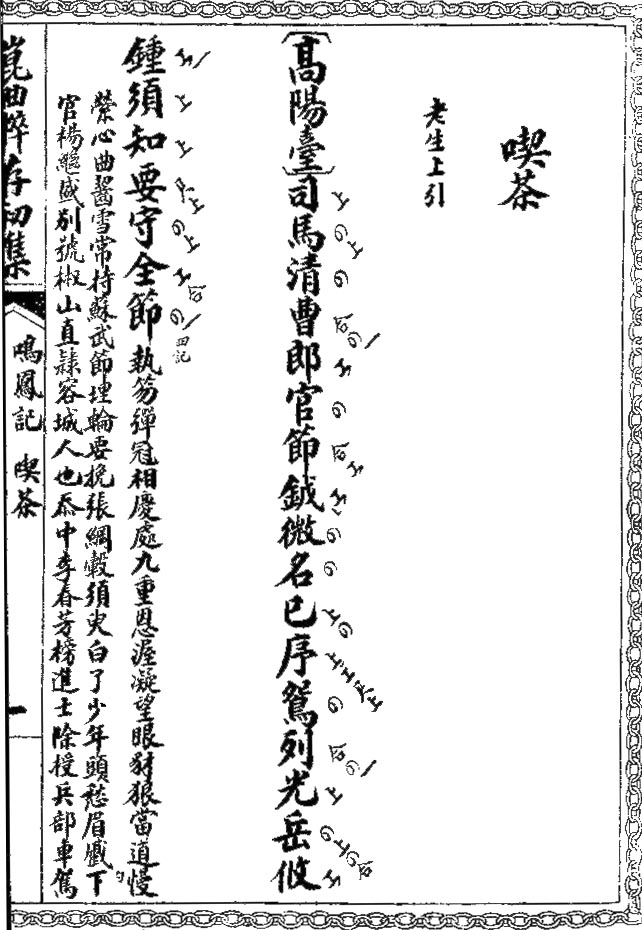 喫茶
老生上引
〔高陽臺〕司馬清曹郎官節鉞微名已序鴛列光岳攸
鍾須知要守全節執笏彈冠相慶處九重恩渥凝望眼豺狼當道慢
縈心曲齧雪常持蘇武節埋輪要挽張綱轂須臾白了少年頭愁眉戚下
官楊繼盛別號椒山直隸容城人也忝中李春芳榜進士除授兵部車駕
崑曲粹存初集
鳴鳳記 喫茶
一